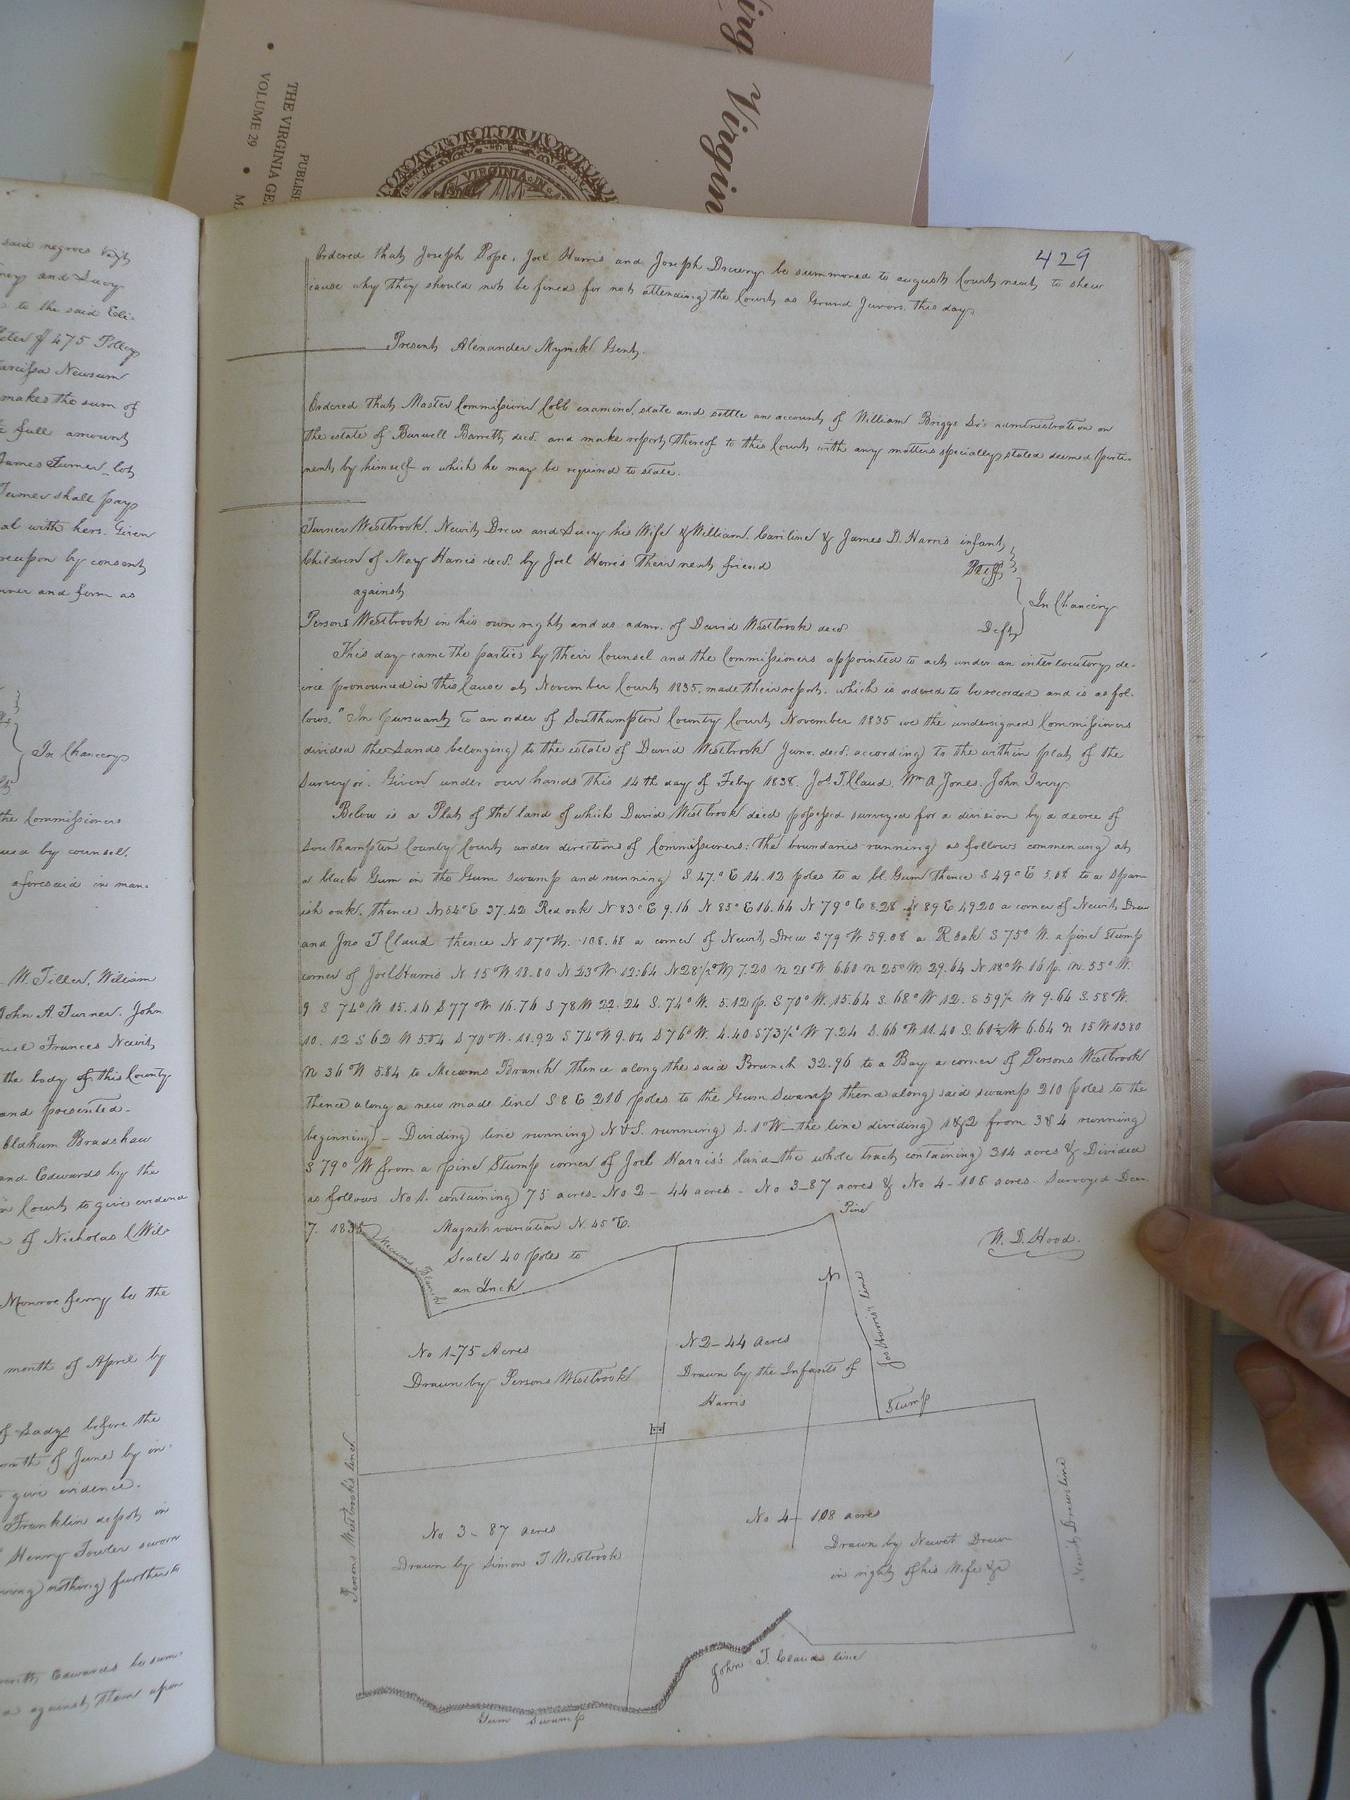 Virgin
THE VIRGINIA GE
VOLUME 29
PUBLIS
VIRGINIA
429
Ordered that Joseph Pope, Joel Harris and Joseph Drewry be summoned to august Court next to shew
cause why they should not be fined for not attending the Court as Grand Jurors this day
Present Alexander Myrick Gent.
Ordered that Master Commissioner Cobb examine, state and settle an account of William Briggs administration on
the estate of Burwell Barrett decd. and make report thereof to this Court with any matters specially stated deemed perti-
nent by himself or which he may be required to state.
Turner Westbrook, Newit Drew and Lucy his Wife & William, Caroline & James D. Harris infant
Children of Mary Harris decd. by Joel Harris their next friend Pltffs
against In Chancery
Persons Westbrook in his own right and as admr. of David Westbrook decd Defts
This day came the parties by their Counsel and the Commissioners appointed to act under an interlocutory de-
cree pronounced in this Cause at November Court 1835, made their report, which is ordered to be recorded and is as fol-
lows. "In pursuant to an order of Southampton County Court November 1835 we the undersigned Commissioners
divided the Lands belonging to the estate of David Westbrook Junr. decd. according to the within plat of the
Surveyor. Given under our hands this 14th day of Feby 1838. Jos T Claud, Wm A Jones, John Ivey
Below is a Plat of the land of which David Westbrook decd possessed surveyed for a division by a decree of
Southampton County Court under direction of Commissioners: the boundaries running as follows commencing at
a black Gum in the Gum swamp and running S 47° E 14.12 poles to a bl. Gum thence S 49° E 5.08 to a Span-
ish oak, thence N 84° E 37.42 Red oak N 83° E 9.16 N 85° E 16.64 N 79° E 8.28 N 89 E 49.20 a corner of Newit Drew
and Jno T Claud thence N 17 W. 108.68 a corner of Newit Drew S 79 W 59.08 a R oak S 75° W. a pine Stump
corner of Joel Harris N 15 W 18.80 N 23 W 12.64 N 28½° W 7.20 N 21° W 6.60 N 25° W 29.64 N 18° W 16 p. N. 55° W.
9 S 74° W 15.16 S 77° W 16.76 S 78 W 22.24 S. 74° W. 5.12 p. S 70° W. 15.64 S. 68° W 12. S 59½ W 9.64 S. 58° W.
10.12 S 62 W 5.04 S 70° W. 11.92 S 74° W 9.04 S 76° W. 4.40 S 73½° W 7.24 S. 66° W 11.40 S. 60½ W 6.64 N 15 W 13.80
N 36° W 5.84 to Mecums Branch thence along the said Branch 32.96 to a Bay a corner of Persons Westbrook
thence along a new made line S 8 E 210 poles to the Gum Swamp thence along said swamp 210 poles to the
beginning - Dividing line running N & S. running S. 1° W - the line dividing 1 & 2 from 3 & 4 running
S 79° W from a pine Stump corner of Joel Harris's land - the whole tract containing 314 acres & Divided
as follows No 1. containing 75 acres - No 2 - 44 acres - No 3 - 87 acres & No 4 - 108 acres. Surveyed Dec.
7. 1835
W. D. Hood.
Magnet variation N. 45 E.
Scale 40 poles to
an Inch
Pine
Mecums Branch
N
Joel Harris's line
No 1-75 Acres
Drawn by Persons Westbrook
N 2-44 Acres
Drawn by the Infants of
Harris
Stump
Persons Westbrook's line
Newit Drews line
No 3-87 acres
Drawn by Simon T Westbrook
No 4-108 acres
Drawn by Newit Drew
in right of his Wife &c
John T. Clauds line
Gum Swamp
said negroes
and Lucy
to the said Eli-
475
Newsum
makes the sum of
full amount
James Turner, lot
Turner shall pay
with hers. Given
by consent
and form as
In Chancery
the Commissioners
by counsel,
aforesaid in man-
M. Tiller, William
John A Turner, John
Frances Newit
the body of this County
and presented.
Bradshaw
and Edwards by the
Court to give evidence
of Nicholas C Wil-
Monroe ferry be the
month of April by
before the
month of June by in-
give evidence.
Franklin depot in
Henry Fowler sworn
nothing further to
Edwards be sum-
against them upon